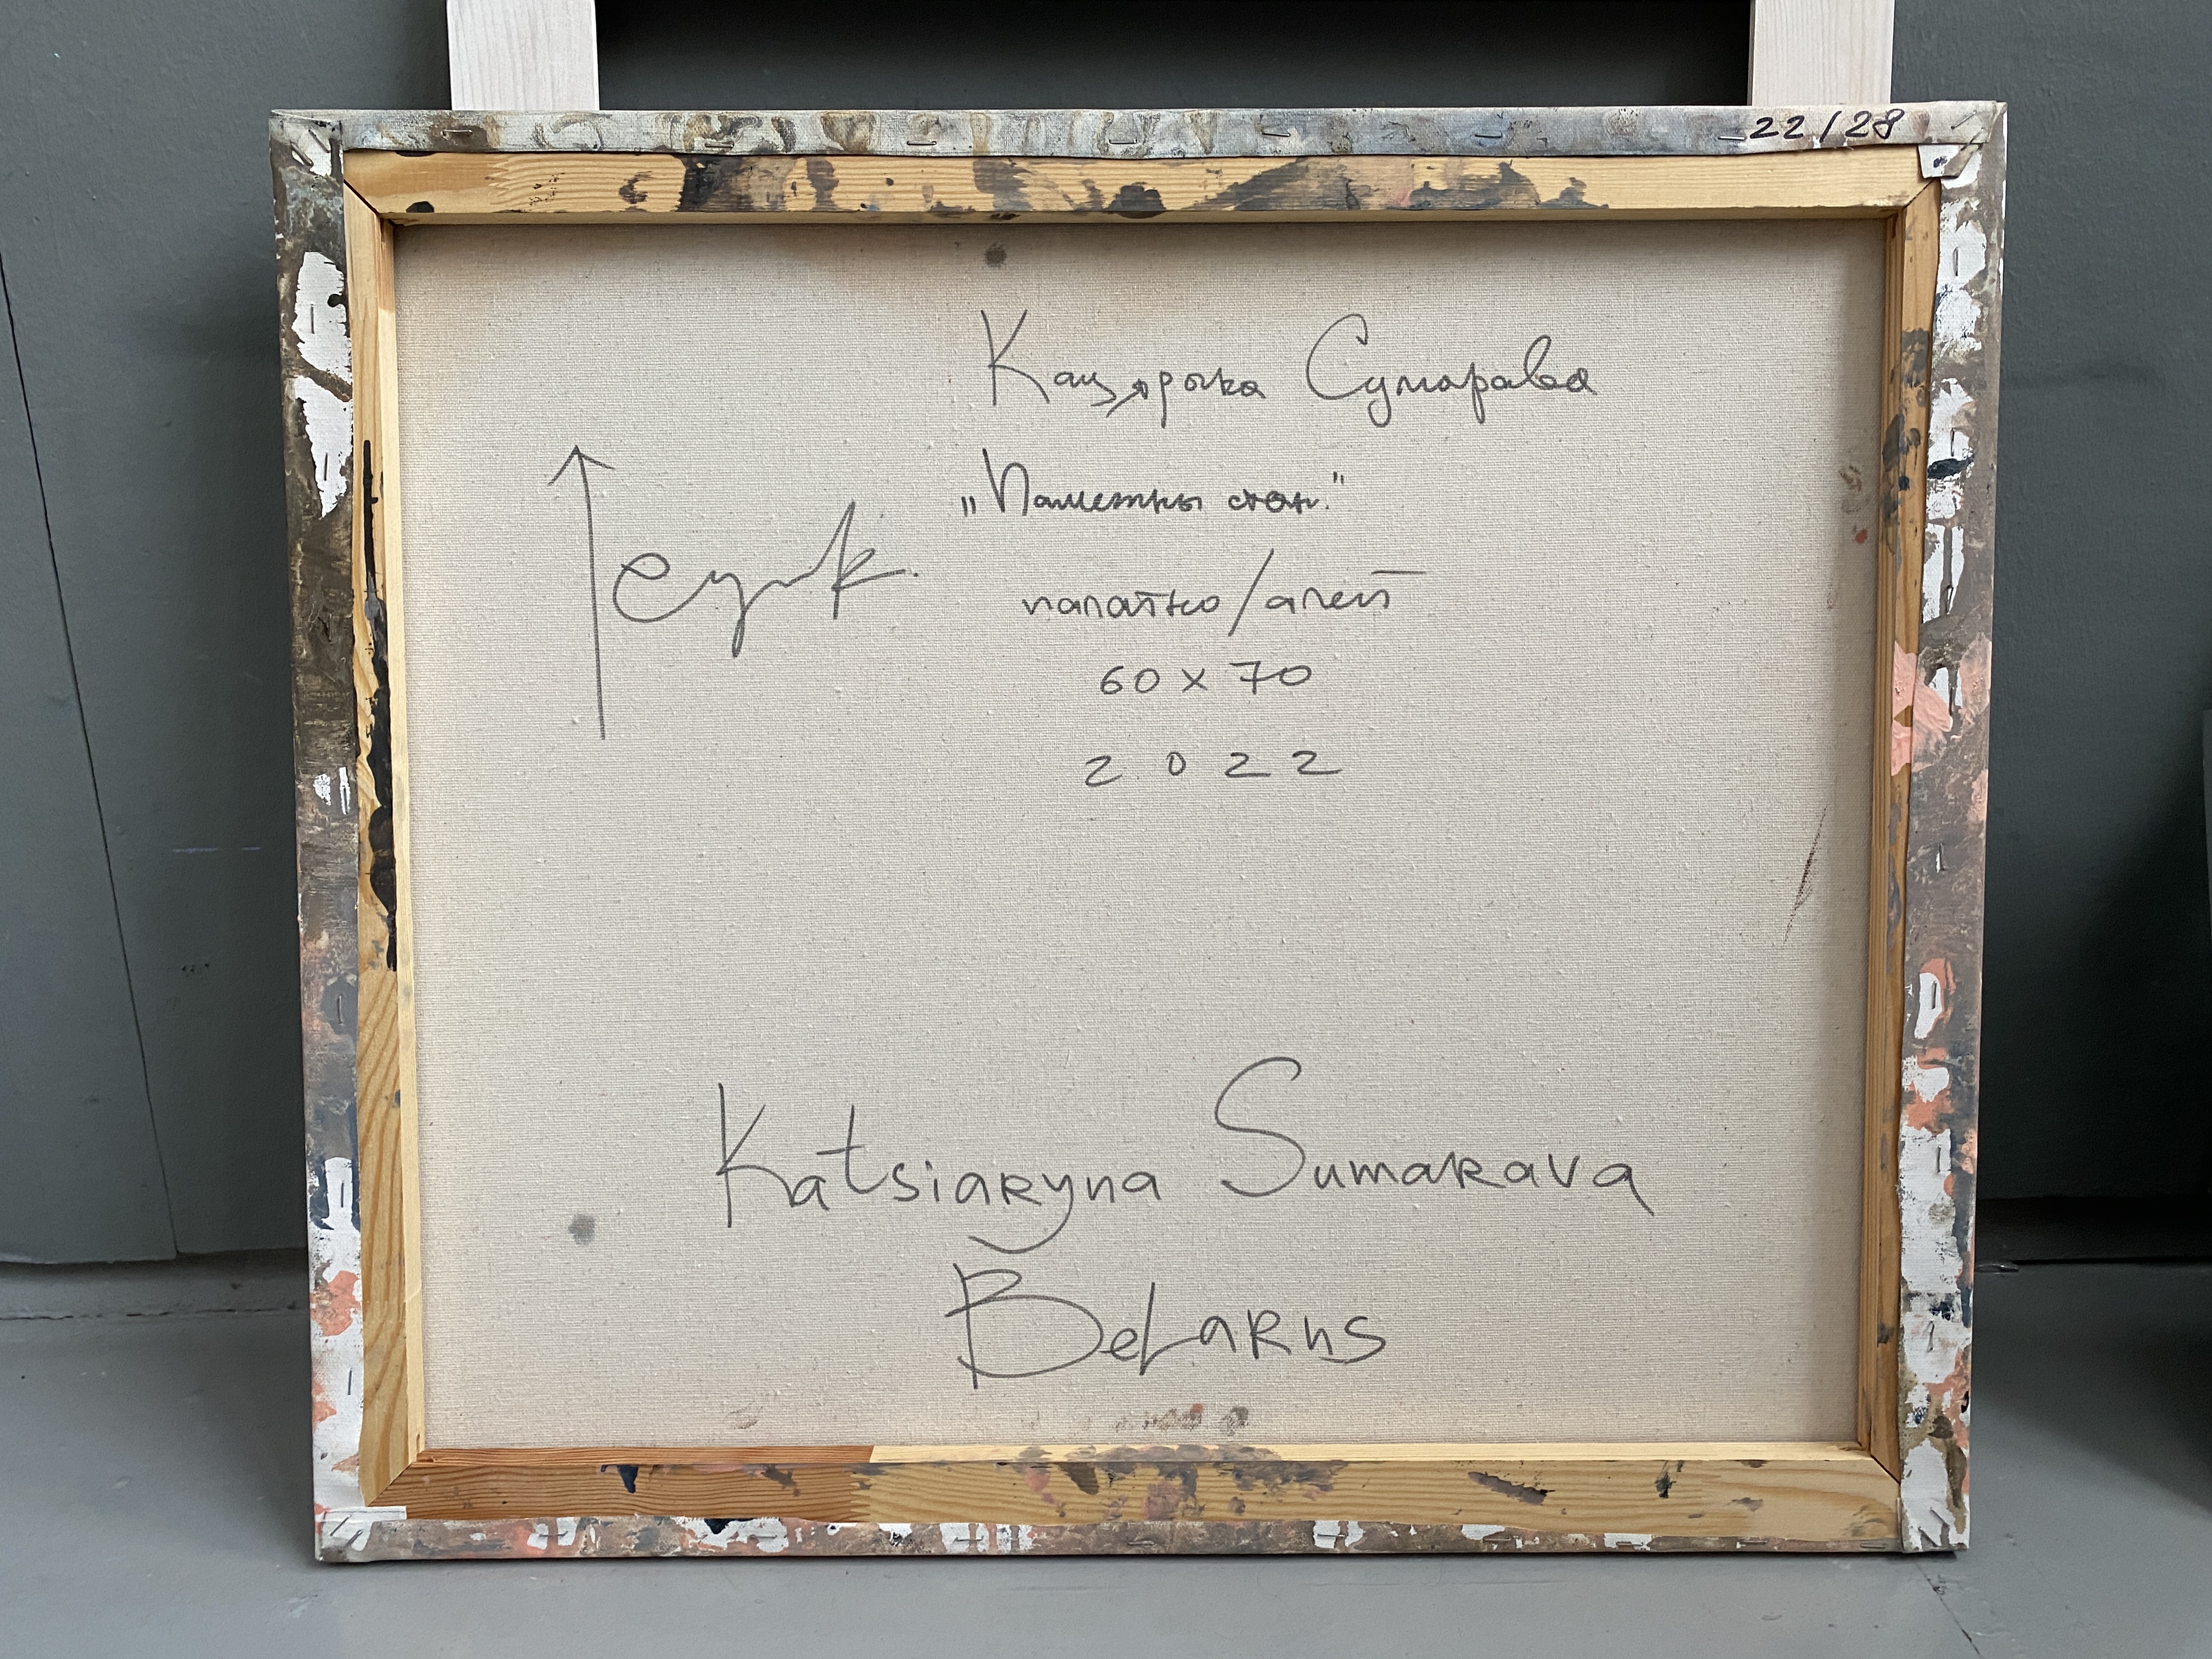 22/28
Кацярына Сумарава
„Памежны стан."
палатно/алей
60 x 70
2022
Katsiaryna Sumarava
Belarus